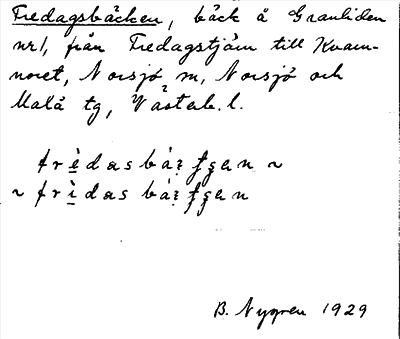 Fredagsbäcken, bäck å Granliden
nr 1, från Fredagstjärn till Kvarn-
noret, Norsjö sn, Norsjö och
Malå tg, Västerb. l.
B. Nygren 1929